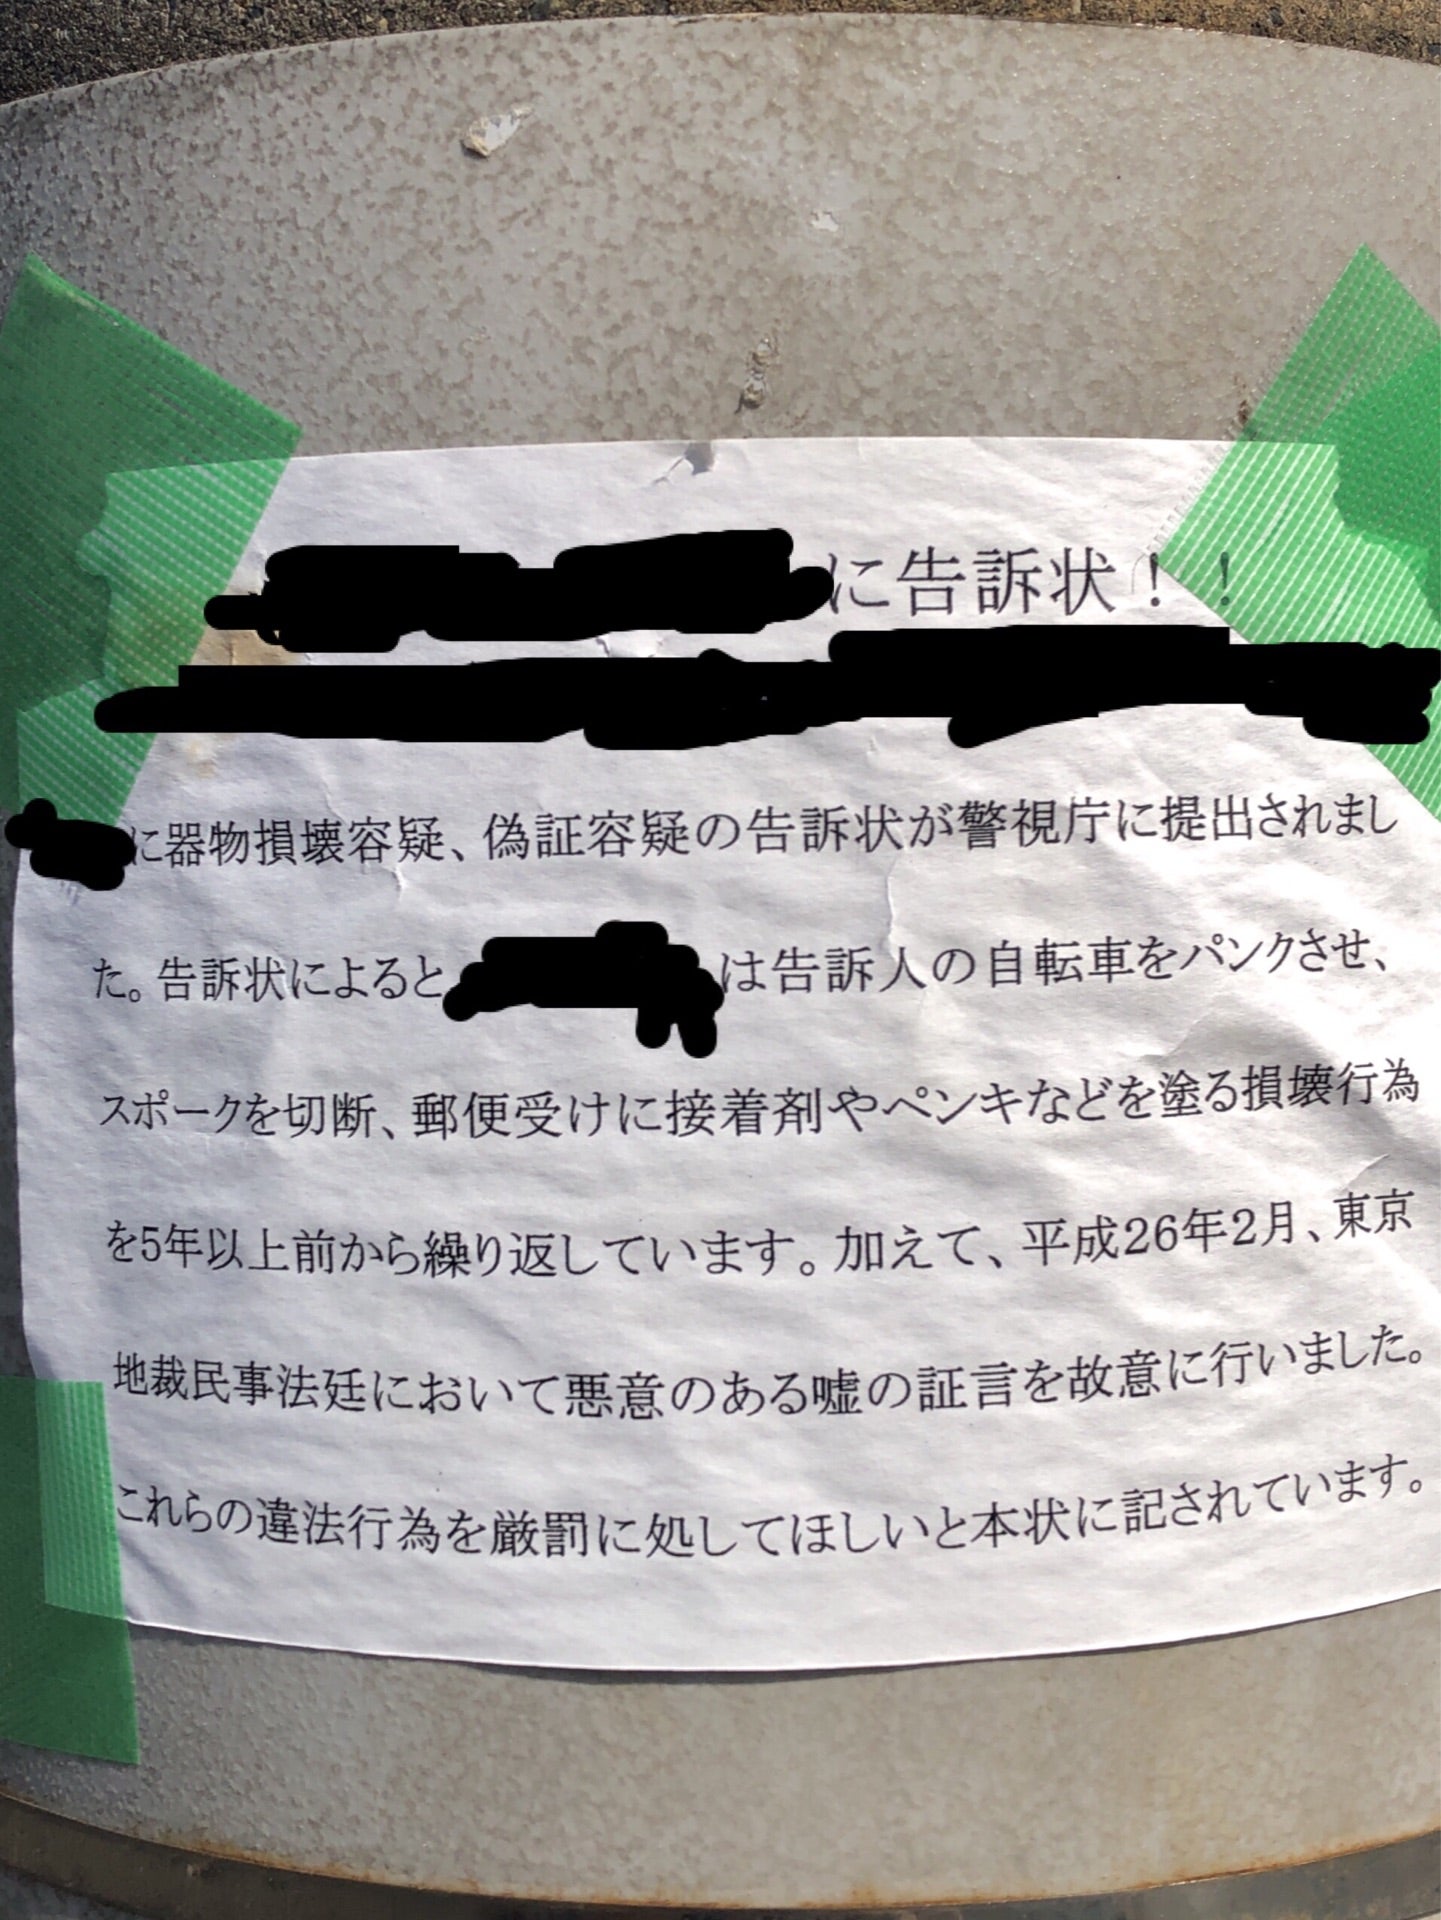 に告訴状！！
に器物損壊容疑、偽証容疑の告訴状が警視庁に提出されまし
た。告訴状によると
は告訴人の自転車をパンクさせ、
スポークを切断、郵便受けに接着剤やペンキなどを塗る損壊行為
を5年以上前から繰り返しています。加えて、平成26年2月、東京
地裁民事法廷において悪意のある嘘の証言を故意に行いました。
これらの違法行為を厳罰に処してほしいと本状に記されています。